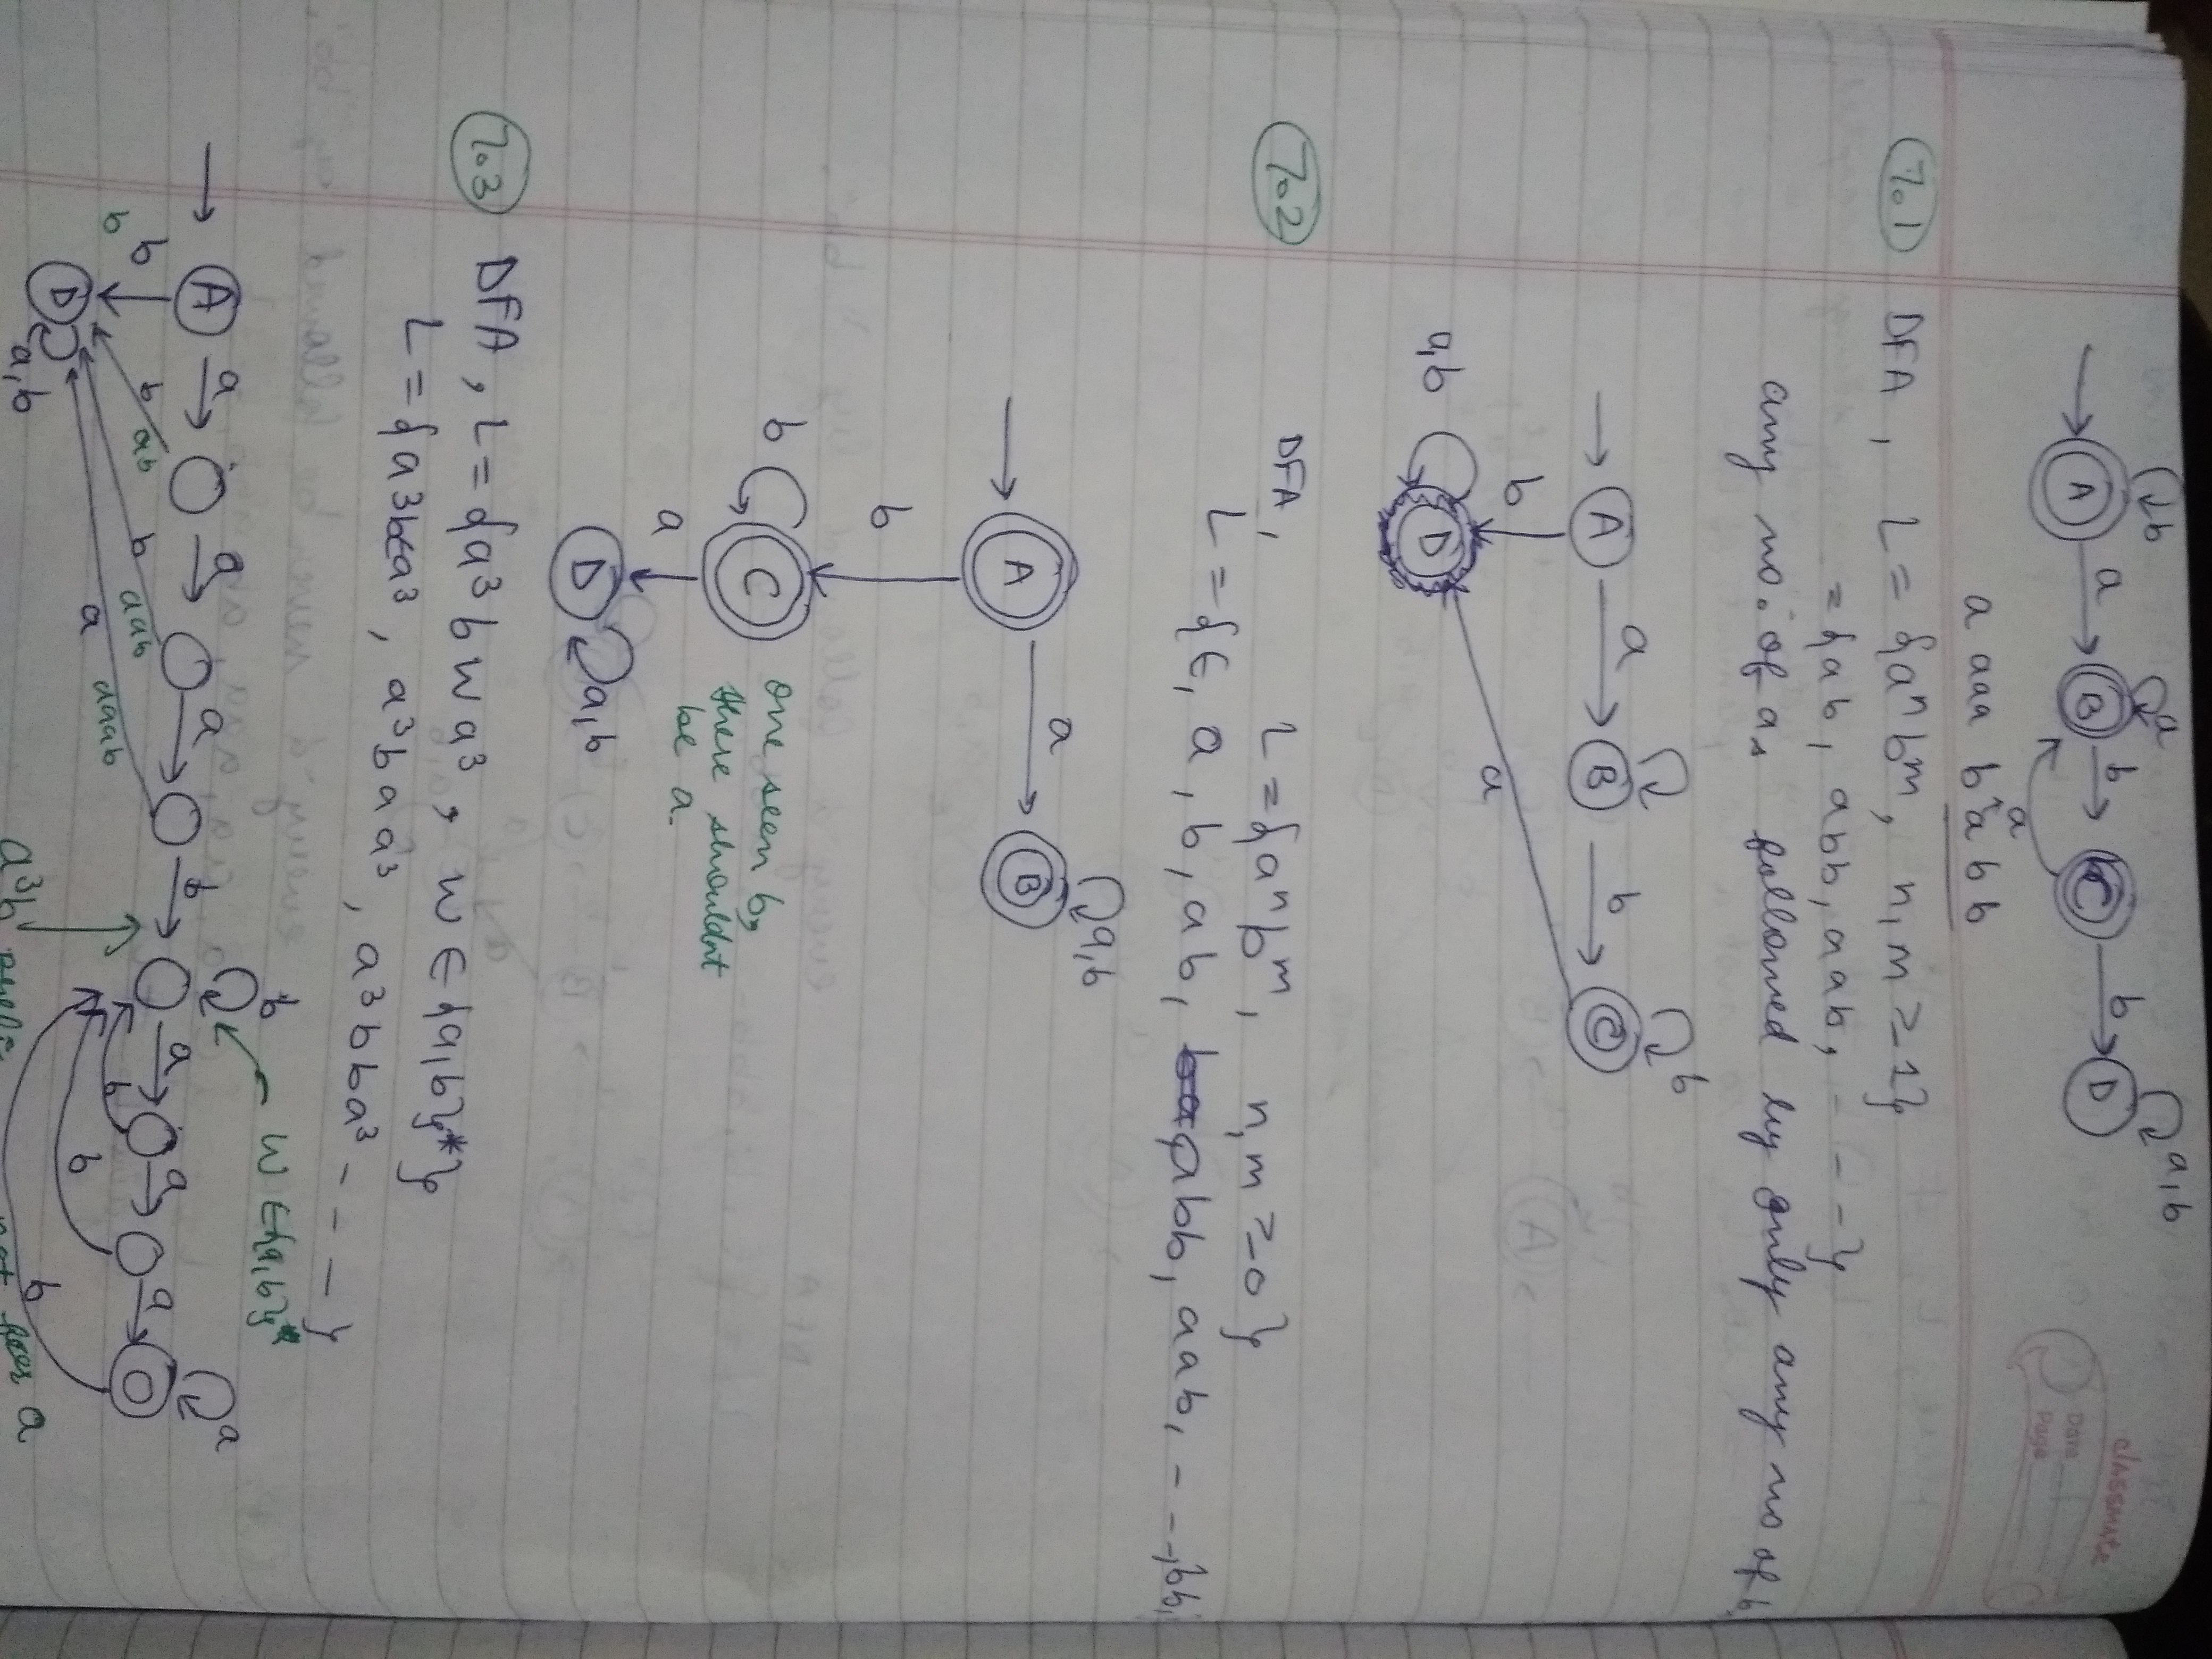 classmate
Date
Page
b a a,b
A a B b C b D
a
a aaa b a b b
7.1 DFA, L = {aⁿ bᵐ, n,m ≥ 1}
= {ab, abb, aab, - - - }
any no. of a, followed by only any no of b,
b
A a B b C
b a
a,b D
7.2 DFA, L = {aⁿbᵐ, n,m ≥ 0}
L = {ε, a, b, ab, abb, aab, - - , bb,
a,b
A a B
b
b C one seen b, there shouldnt be a.
a
D a,b
7.3 DFA, L = {a³ b w a³, w ∈ {a,b}*}
L = {a³ba³, a³baa³, a³bbba³ - - - }
w ∈ {a,b}*
b a
A a a a b a a a
b b b ab b aab a aaab b b b
D a,b
a³b
a